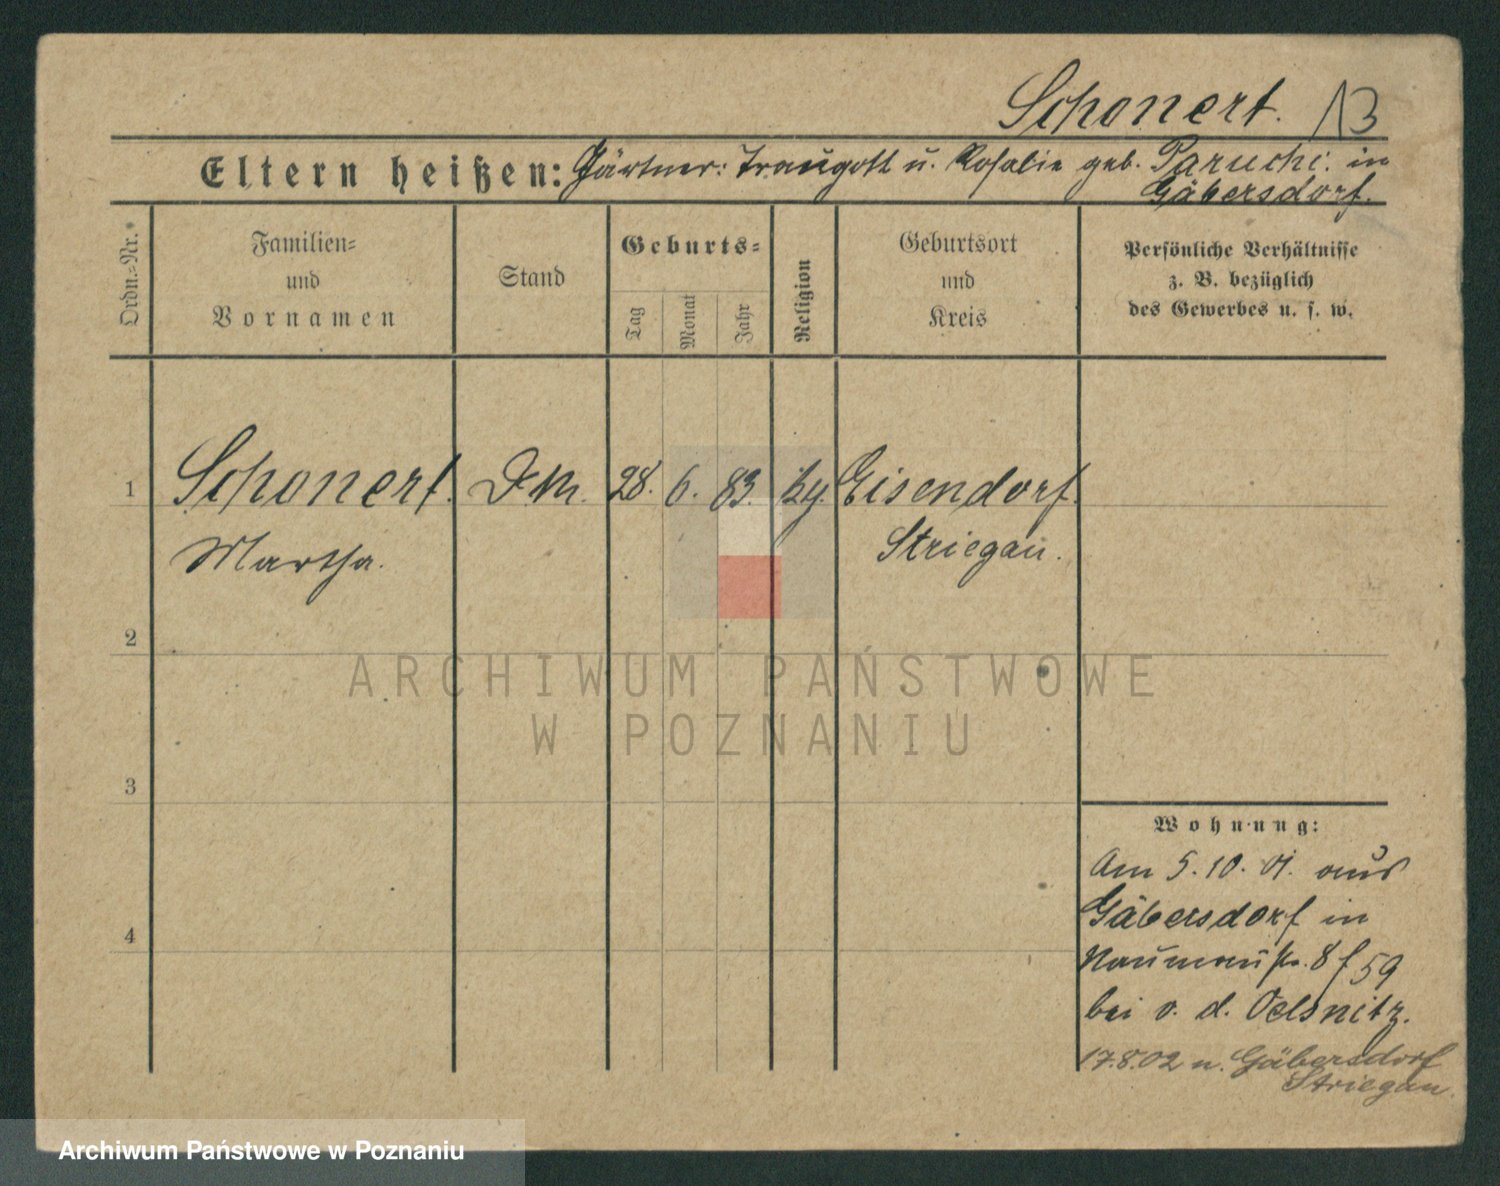 Schonert. 13
Eltern heißen: Gärtner: Traugott u. Rosalie geb. Paruchi. in
Gäbersdorf.
Ordn.-Nr.
Familien-
und
Vornamen
Stand
Geburts-
Tag
Monat
Jahr
Religion
Geburtsort
und
Kreis
Persönliche Verhältnisse
z. B. bezüglich
des Gewerbes u. s. w.
1 Schonert. D.M. 28. 6. 83. Eisendorf.
Martha. Striegau.
2
ARCHIWUM PAŃSTWOWE
W POZNANIU
3
Wohnung:
Am 5. 10. 01. aus
4 Gäbersdorf in
Naumannstr. 8 f 59
bei v. d. Oelsnitz.
17.8.02 n. Gäbersdorf
Striegau.
Archiwum Państwowe w Poznaniu